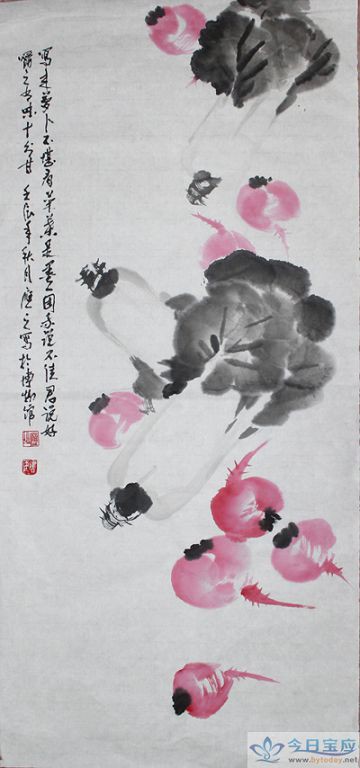 写来萝卜不堪看羊菜是画国我说不佳君说好
嚼之其味十分甘 壬辰年秋月 之写於博物馆
今日宝应
www.bytoday.net